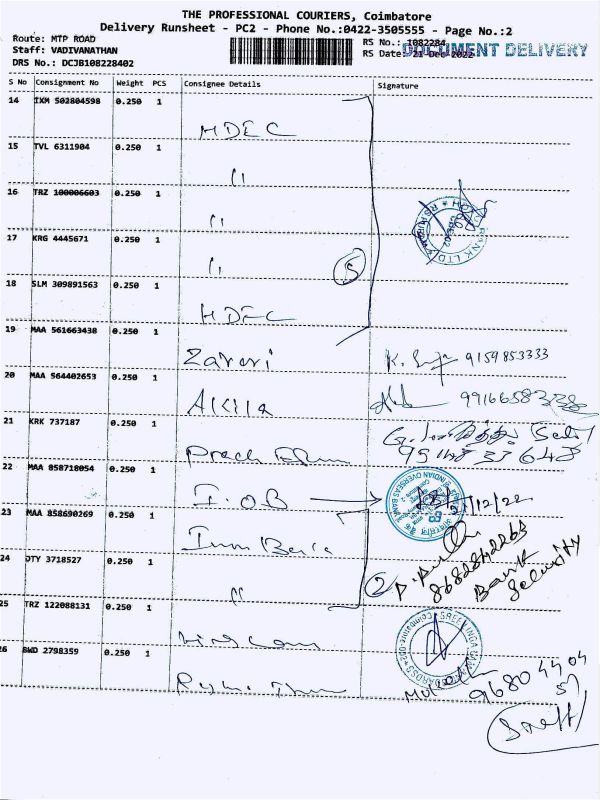 THE PROFESSIONAL COURIERS, Coimbatore
Delivery Runsheet - PC2 - Phone No.:0422-3505555 - Page No.:2
Route: MTP ROAD
Staff: VADIVANATHAN
DRS No.: DCJB108228402
RS No.: I082284
RS Date: 21-Dec-2022
DOCUMENT DELIVERY
S No Consignment No Weight PCS Consignee Details Signature
14 IXM 502804598 0.250 1
HDFC
15 TVL 6311904 0.250 1
"
16 TRZ 100006603 0.250 1
"
17 KRG 4445671 0.250 1
" 5
18 SLM 309891563 0.250 1
HDFC
19 MAA 561663438 0.250 1
Zaveri 9159853333
20 MAA 564402653 0.250 1
Akila 9916658328
21 KRK 737187 0.250 1
22 MAA 858718054 0.250 1
I.O.B 21/12/22
23 MAA 858690269 0.250 1
8682842263
Bank
Security
24 JTY 3718527 0.250 1
" 2
25 TRZ 122088131 0.250 1
26 BWD 2798359 0.250 1
9680 44 04
57